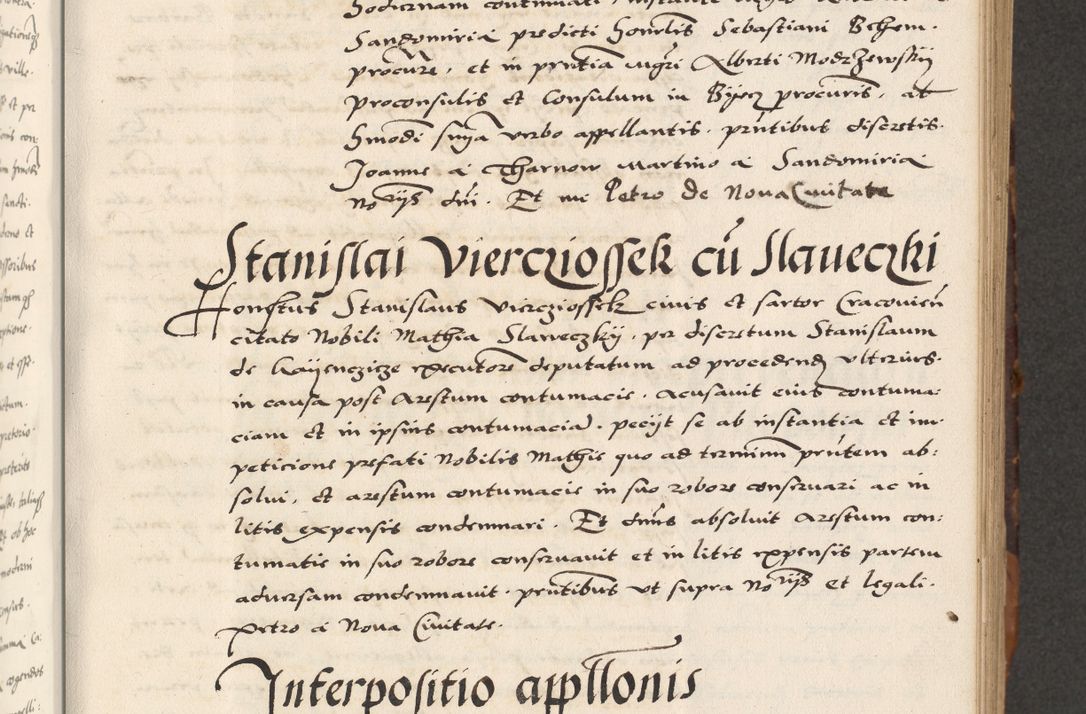 Sandomiria predicti honlis Sebastiani Bchem
procure, et in pntia mgri Alberti Modrzewskij
proconsulis et consulum in Byecz procuris, at
hmodi suma verbo appellantis. pntibus discretis
Joanne a Tharnow Martino a Sandomiria
noriis dni. Et me Petro de Nova Civitate
Stanislai Viercziossek cu Slaveczki
Honestus Stanislaus Viercziossek civis et sartor Cracovien
citato Nobili Mathia Slaweczkij, per discretum Stanislaum
de executore deputatum ad procedend ulterius
in causa post arestum contumacie. acusavit eius contuma
ciam et in ipsius contumacia. peciit se ab instantia et im
peticione prefati Nobilis Mathie quo ad terminum pntem ab:
solvi, et arestum contumacie in suo robore conservari ac in
litis expensis condemnari. Et dnus absolvit arestum con:
tumatie in suo robore conservavit et in litis expensis partem
adversam condemnavit. pntibus ut supra noriis et legali.
Petro a Nova Civitate.
Interpositio appllonis